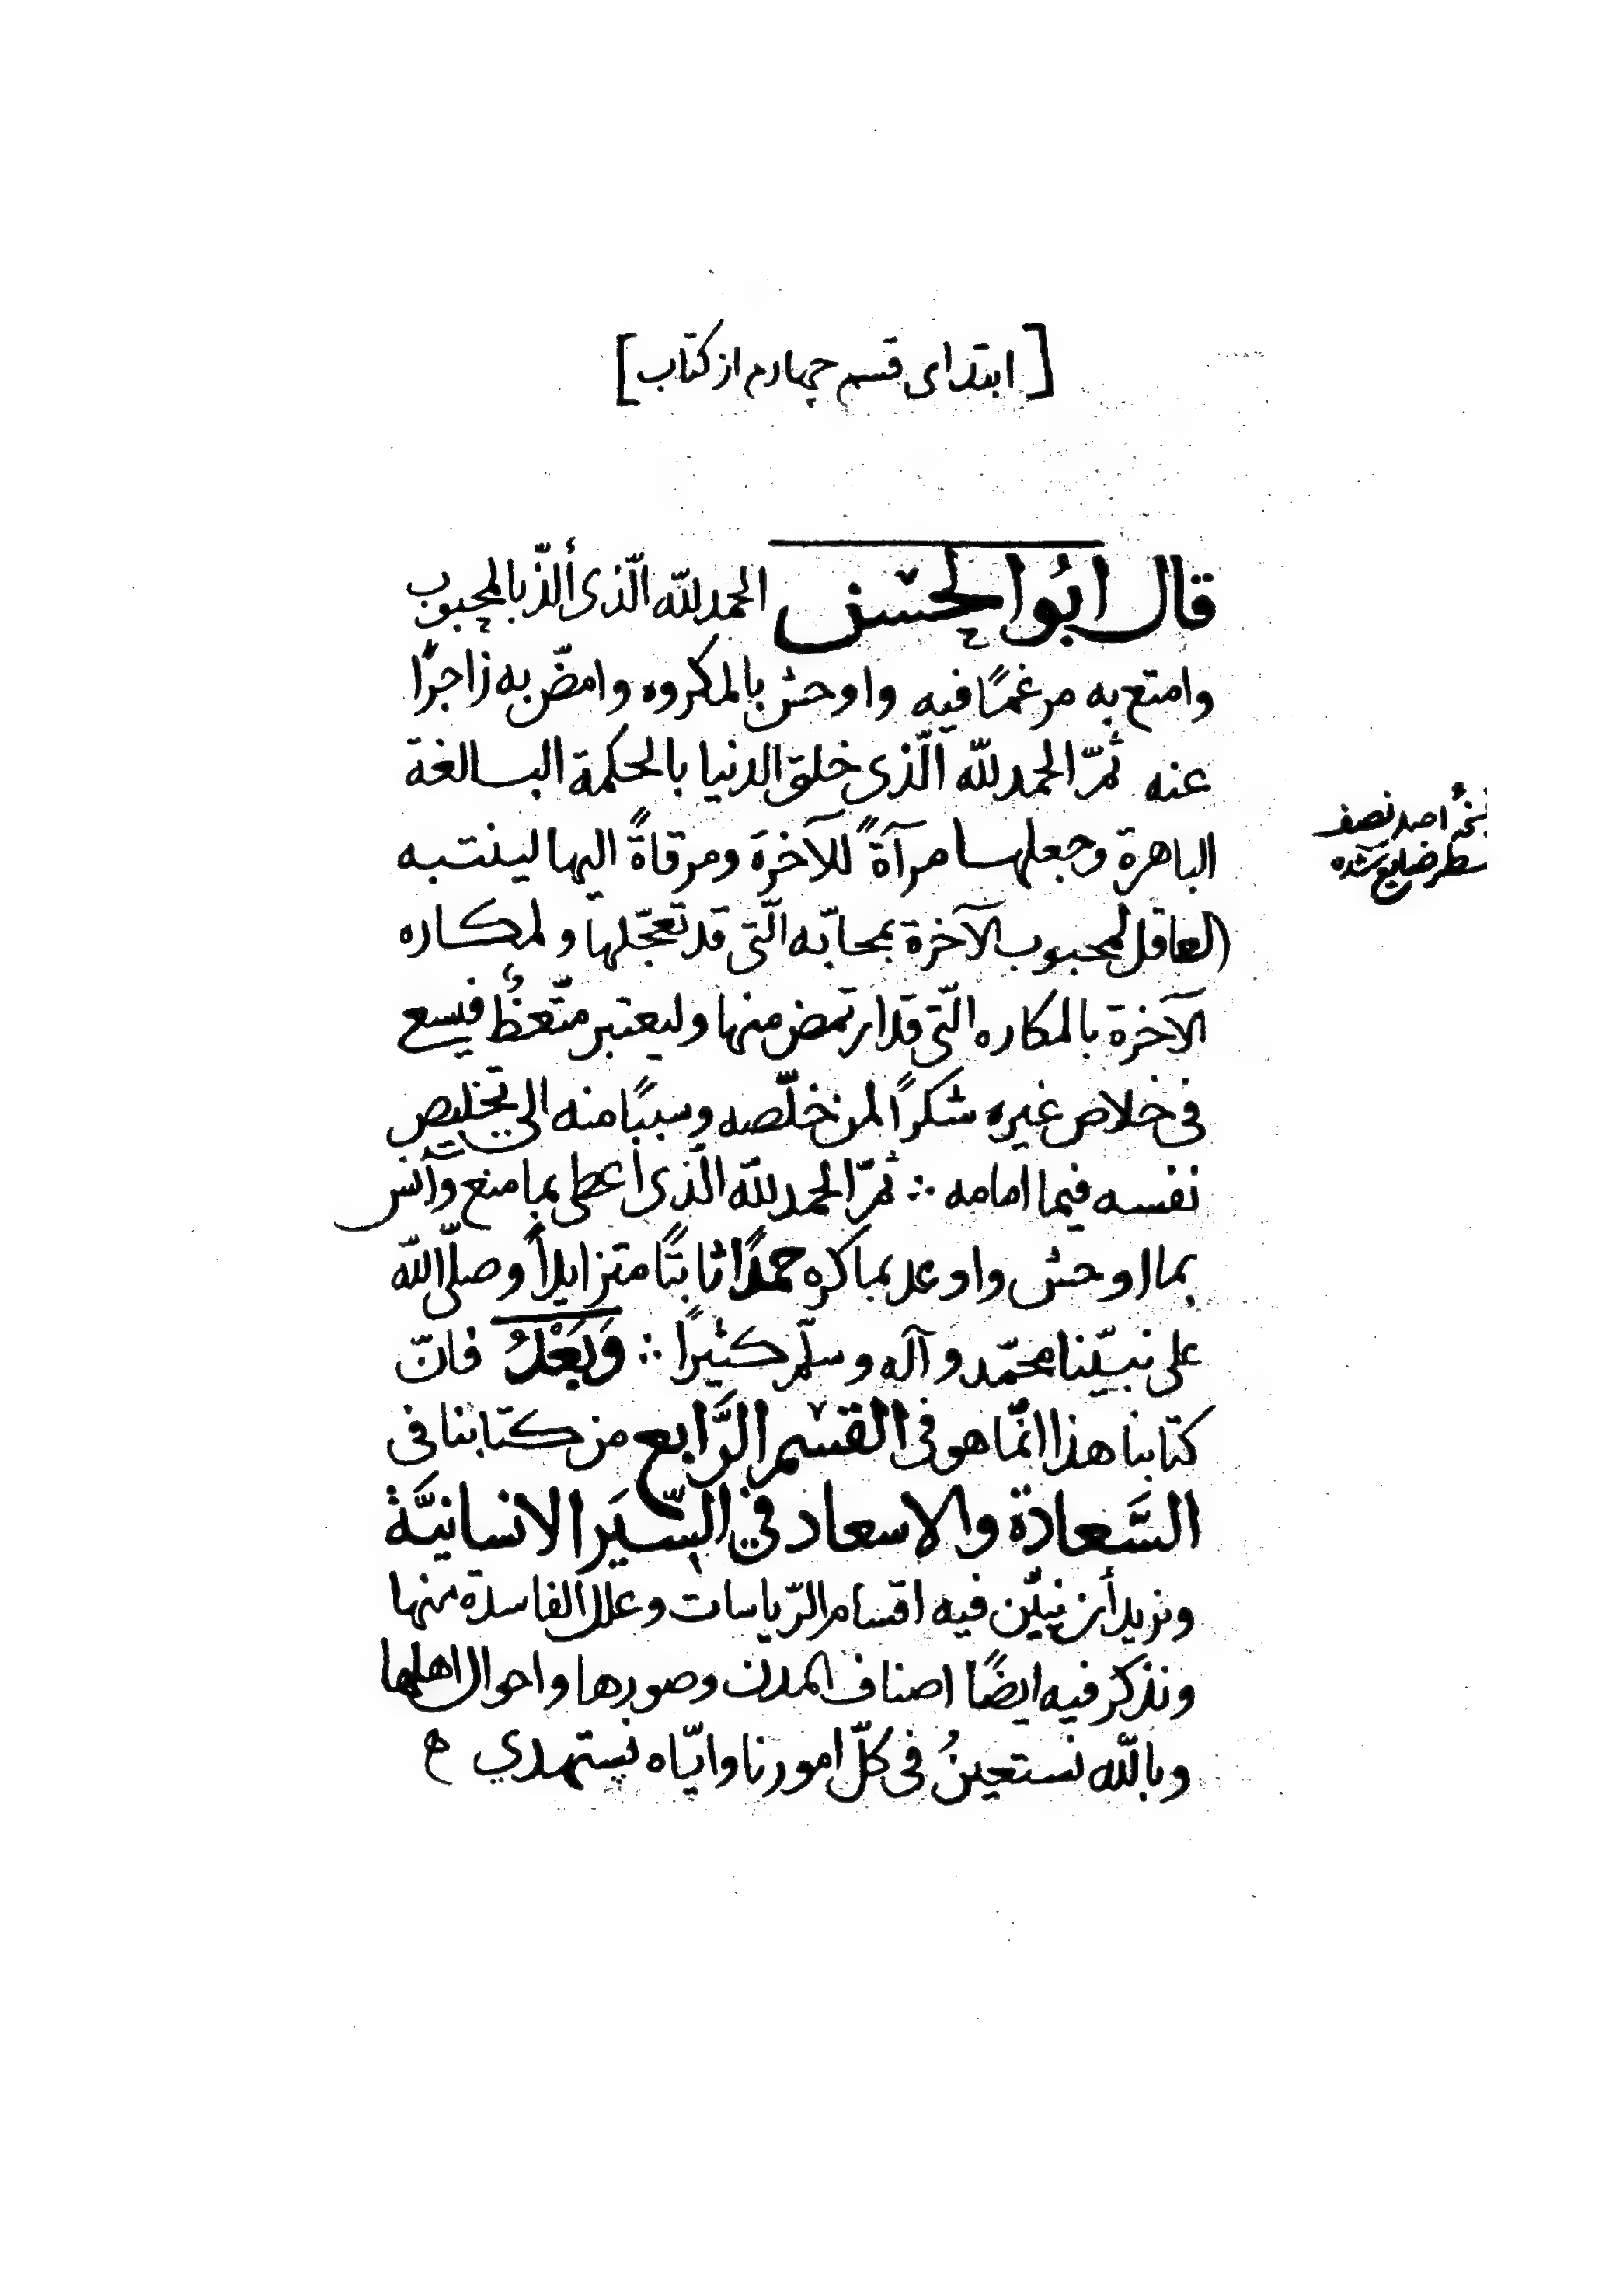 [ابتدای قسم چهارم از کتاب]
قال ابُو الحسن الحمد للّه الّذی ألذّ بالمحبوب
وامتع به مرغمًا فيه واوحش بالمكروه وامضّ به زاجرًا
عنه ثمّ الحمد للّه الّذی خلق الدنيا بالحكمة البالغة
الباهرة وجعلها مرآةً للآخرة ومرقاةً اليها لينتبه
العاقل لمحبوب الآخرة بمحابّه الّتی قد تعجّلها ولمكاره
الآخرة بالمكاره الّتی قد ارتمض منها وليعتبر متّعظٌ فيسع
فی خلاص غيره شكرًا لمن خلّصه وسببًا منه الی تخليص
نفسه فيما امامه ∴ ثمّ الحمد للّه الّذی أعطی بما منع وآنس
بما اوحش واوعد بما كره حمدًا ثابتًا متزايلاً وصلّی اللّه
علی نبيّنا محمّد و آله و سلّم كثيرًا ∴ وَبَعْدُ فانّ
كتابنا هذا انّما هو فی القسم الرَّابع من كتابنا فی
السَّعادة والاسعاد في السِّيَر الانسانيَّة
ونريد أن نبيّن فيه اقسام الرّياسات وعلل الفاسدة منها
ونذكر فيه ايضًا اصناف المدن وصورها واحوال اهلها
وباللّه نستعينُ فی كلّ امورنا وايّاه نستهدي
نصف
سطر ضایع شده